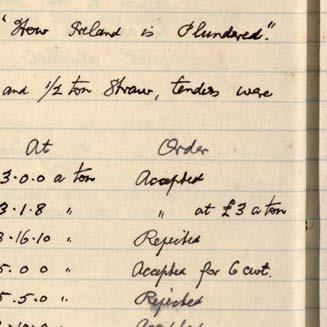 "How Ireland is Plundered".
and 1/2 ton Straw, tenders were
At Order
3.0.0 a ton Accepted
3.1.8 " " at £3 a ton
3.16.10 " Rejected
5.0 0 " Accepted for 6 cwt.
5.5.0 " Rejected